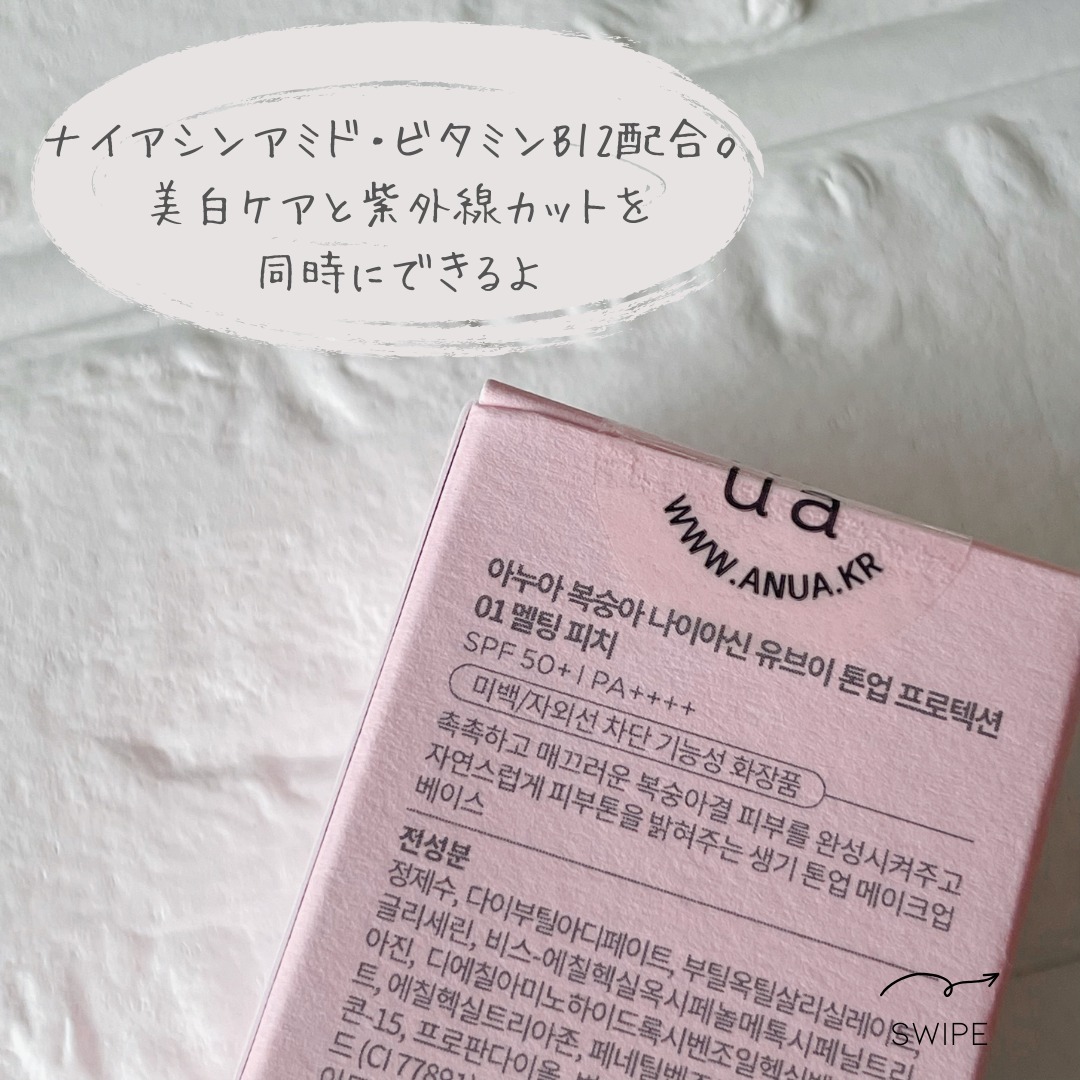 ナイアシンアミド・ビタミンB12配合。
美白ケアと紫外線カットを
同時にできるよ
ua
WWW.ANUA.KR
아누아 복숭아 나이아신 유브이 톤업 프로텍션
01 멜팅 피치
SPF 50+ I PA++++
미백/자외선 차단 기능성 화장품
촉촉하고 매끄러운 복숭아결 피부를 완성시켜주고
자연스럽게 피부톤을 밝혀주는 생기 톤업 메이크업
베이스
전성분
정제수, 다이부틸아디페이트, 부틸옥틸살리실레이트,
글리세린, 비스-에칠헥실옥시페놀메톡시페닐트리
아진, 디에칠아미노하이드록시벤조일헥실
트, 에칠헥실트리아존, 페네틸벤
콘-15, 프로판다이올,
드 (CI 77891)
SWIPE